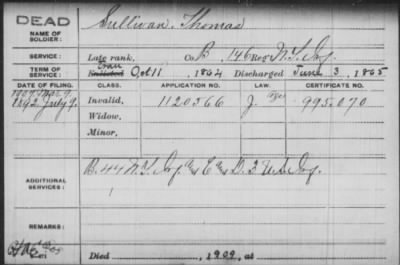 DEAD
NAME OF SOLDIER:
Sullivan, Thomas
SERVICE:
Late rank, Co. B, 146 Reg't N.Y. Inf.
TERM OF SERVICE:
Enlisted Oct 11, 1864 Discharged June 3, 1865
DATE OF FILING. CLASS. APPLICATION NO. LAW. CERTIFICATE NO.
1892 July 9. Invalid, 1120366 J. 995.070
Widow,
Minor,
ADDITIONAL SERVICES:
B. 44 N.Y. Inf. & C & D. 2 U.S. Inf.
REMARKS:
Died , 1909, at